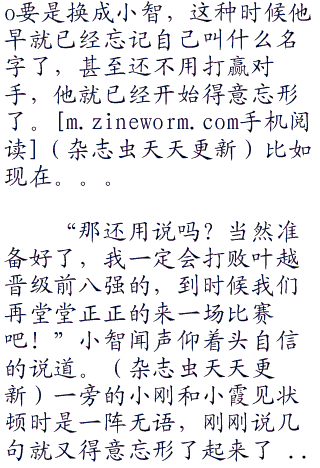 o要是换成小智，这种时候他
早就已经忘记自己叫什么名
字了，甚至还不用打赢对
手，他就已经开始得意忘形
了。[m.zineworm.com手机阅
读]（杂志虫天天更新）比如
现在。。。
“那还用说吗？当然准
备好了，我一定会打败叶越
晋级前八强的，到时候我们
再堂堂正正的来一场比赛
吧！”小智闻声仰着头自信
的说道。（杂志虫天天更
新）一旁的小刚和小霞见状
顿时是一阵无语，刚刚说几
句就又得意忘形了起来了 ..